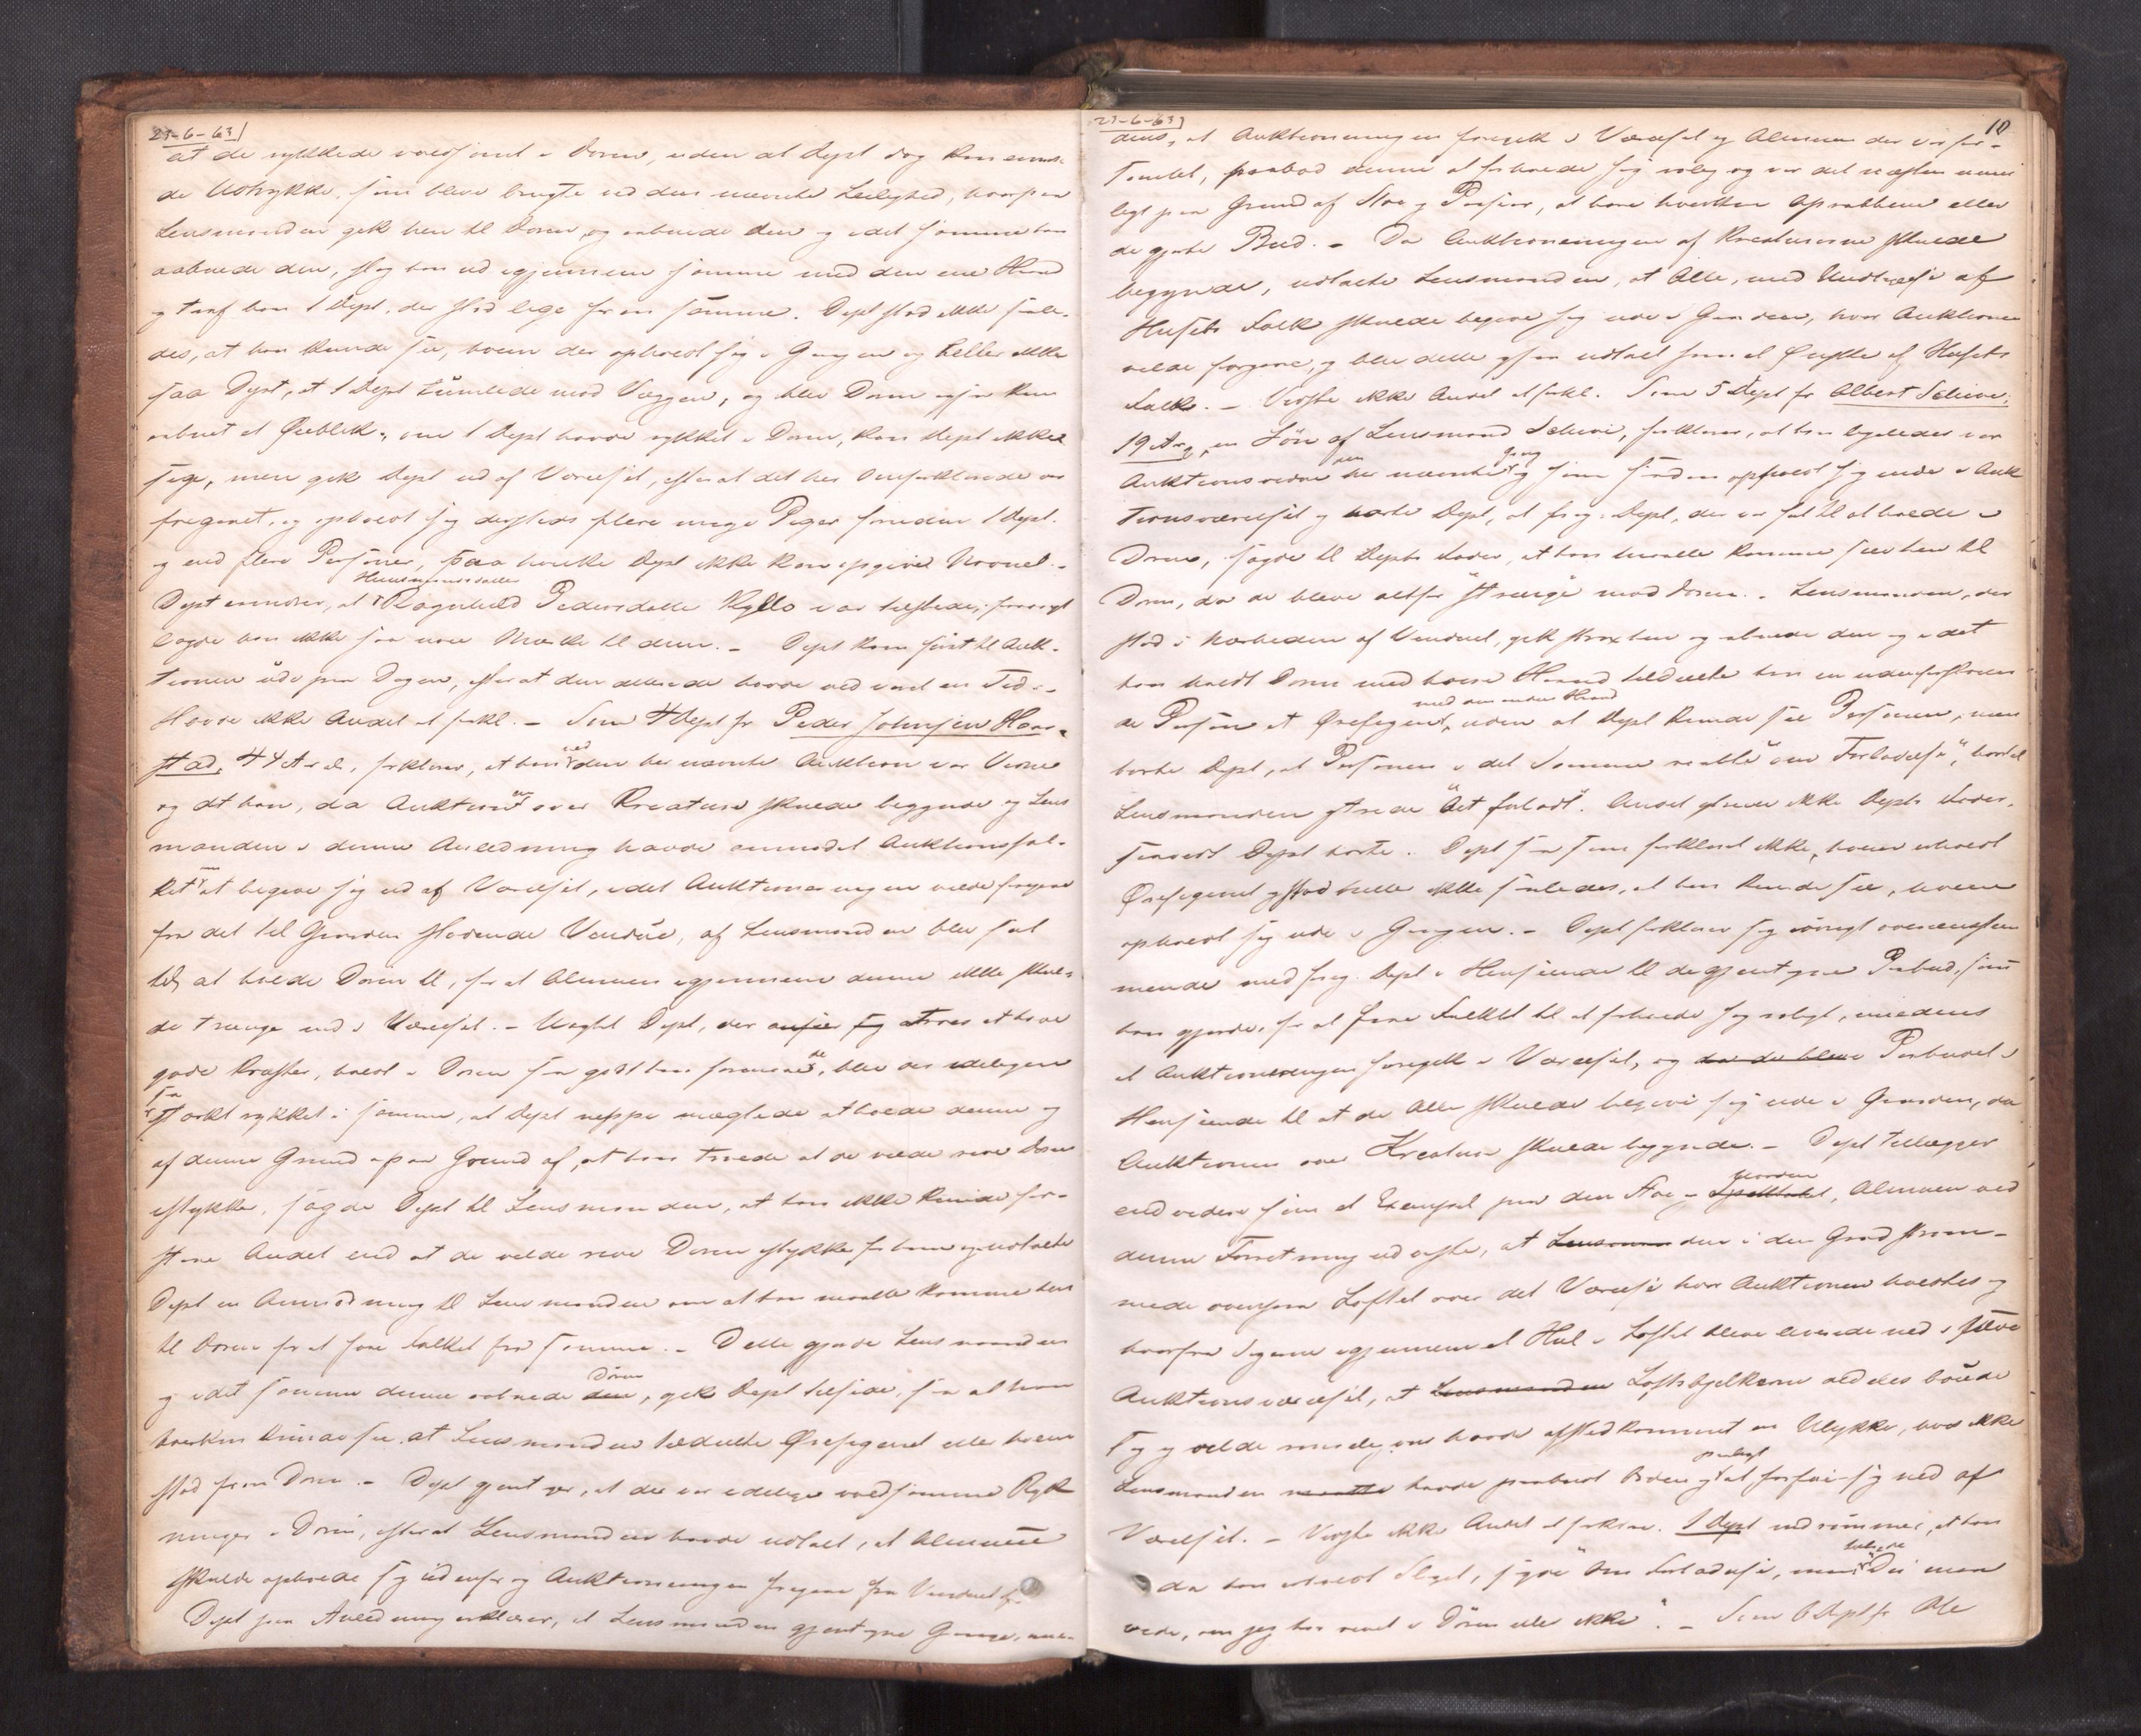 23-6-63
at de rykkede voldsomt i Døren, uden at Dept dog kan erindre
de Udtrykke, som bleve brugte ved den nævnte Leilighed, hvorpaa
Lensmanden gik hen til Døren og aabnede den og idet samme han
aabnede den, slog han ud igjennem samme med den ene Haand
og traf han 1 Dept, der stod lige foran samme. Dept stod ikke saale-
des, at han kunde see, hvem der opholdt sig i Gangen og heller ikke
saa Dept, at 1 Dept tumlede mod Væggen, og blev Døren ogsaa kun
aabnet et Øieblik, om 1 Dept havde rykket i Døren, kan Dept ikke
sige, men gik Dept ud af Værelset, efterat det her Omforklarede var
foregaaet, og opholdt sig desuden flere unge Piger foruden 1 Dept.
og end flere Personer, paa hvilke Dept ikke kan opgive Navnet. -
Huusmandsdatter
Dept erindrer, at Ragnhild Pedersdatter Kyllo var tilstede, forøvrigt
lagde han ikke saa nøie Mærke til dem. - Dept kom først til Auk-
tionen ude paa Dagen, efterat den allerede havde vedvaret en Tid. -
Havde ikke Andet at forkl. - Som 4 Dept fr Peder Johnsen Haar-
stad, 44 Aar, forklarer, at han ved den her nævnte Auktion var Vidne
og at han, da Auktionen over Kreature skulde begynde og Lens
manden i denne Anledning havde anmodet Auktionsfol-
ket om at begive sig ud af Værelset, idet Auktioneringen vilde foregaae
fra det til Gaarden stødende Vindue, af Lensmanden blev sat
til at holde Døren til, for at Almuen igjennem denne ikke skul-
de trænge ind i Værelset. - Uagtet Dept, der anseer sig at have
gode Kræfter, holdt i Døren saa godt han formaaede, blev der idelig
saa stærkt rykket i samme, at Dept neppe mægtede at holde denne og
af denne Grund og paa Grund af, at han troede at de vilde rive Døren
istykker, sagde Dept til Lensmanden, at han ikke kunde for-
staae Andet end at de vilde rive Døren istykker for ham og udtalte
Dept en Anmodning til Lensmanden om at han maatte komme hen
til Døren for at faae Folket fra samme. - Dette gjorde Lensmanden
og idet samme denne aabnede Døren, gik Dept tilside, saa at han
hverken kunde see at Lensmanden tildelte Ørefigenet eller hvem
stod foran Døren. - Dept gjentager, at der var idelige voldsomme Ryk
ninger i Døren, efterat Lensmanden havde udtalt, at Almuen
skulde opholde sig udenfor og Auktioneringen foregaae fra Vinduet af.
Dept paa Anledning erklærer, at Lensmanden gjentagne Gange, me-
23-6-63
10
dens, at Auktioneringen foregik i Værelset og Almuen der var for-
samlet, paabød denne at forholde sig rolig og var det næsten umu
ligt paa Grund af Støi og Passiar, at høre hverken Opraabene eller
de gjorte Bud. - Da Auktioneringen af Kreaturerne skulde
begynde, udtalte Lensmanden, at Alle, med Undtagelse af
Husets Folk skulde begive sig ude i Gaarden, hvor Auktionen
vilde foregaae, og blev dette ogsaa udtalt som et Ønske af Husets
Folk. - Vidste ikke Andet at forkl. Som 5 Dept fr Albert Schive,
19 Aar, en Søn af Lensmand Schive, forklarer, at han ligeledes var
Auktionsvidne den her nævnte Gang og som saadan opholdt sig inde i Auk
tionsværelset og hørte Dept, at forg. Dept, der var sat til at holde i
Døren, sagde til Depts Fader, at han maatte komme hen til
Døren, da de bleve altfor "strænge" mod Døren. - Lensmanden, der
stod i Nærheden af Vinduet, gik strax hen og aabnede den og idet
han holdt Døren med høire Haand tildeelte han en udenforstaaen-
med den anden Haand
de Person et Ørefigen, uden at Dept kunde see Personen, men
hørte Dept, at Personen i det Samme raabte "om Forladelse", hvortil
Lensmanden ytrede "Det forladt". Andet ytrede ikke Depts Fader,
saavidt Dept hørte. Dept saa som forklaret ikke, hvem erholdt
Ørefigenet og stod heller ikke saaledes, at han kunde see, hvem
opholdt sig ude i Gangen. - Dept forklarer sig iøvrigt overensstem
mende med forg. Dept i Henseende til de gjentagne Paabud, som
han gjorde, for at faae Folket til at forholde sig roligt, imedens
at Auktioneringen foregik i Værelset, og da de bleve Paabudet i
Henseende til at de Alle skulde begive sig ude i Gaarden, da
Auktionen over Kreature skulde begynde. - Dept tillægger
endvidere som et Exempel paa den Støi - Spektakel, Almuen ved
denne Forretning udviste, at Lensmanden i den Grad strøm-
mede ovenpaa Loftet over det Værelse hvor Auktionen holdtes og
hvorfra Sagerne igjennem et Hul i Loftet bleve leverede ned i selve
Auktionsværelset, at Lensmanden Loftsbjelkerne aldeles bøiede
sig og vilde rimeligviis have afstedkommet en Ulykke, hvis ikke
Lensmanden maatte havde paabudt Orden og paalagt at forføie sig ned af
Værelset. - Vidste ikke Andet at forklare. 1 Dept indrømmer, at han
da han erholdt Slaget, sagde "Om Forladelse, men De maa
vide, om jeg har revet i Døren eller ikke". - Som 6 Dept fr Ole